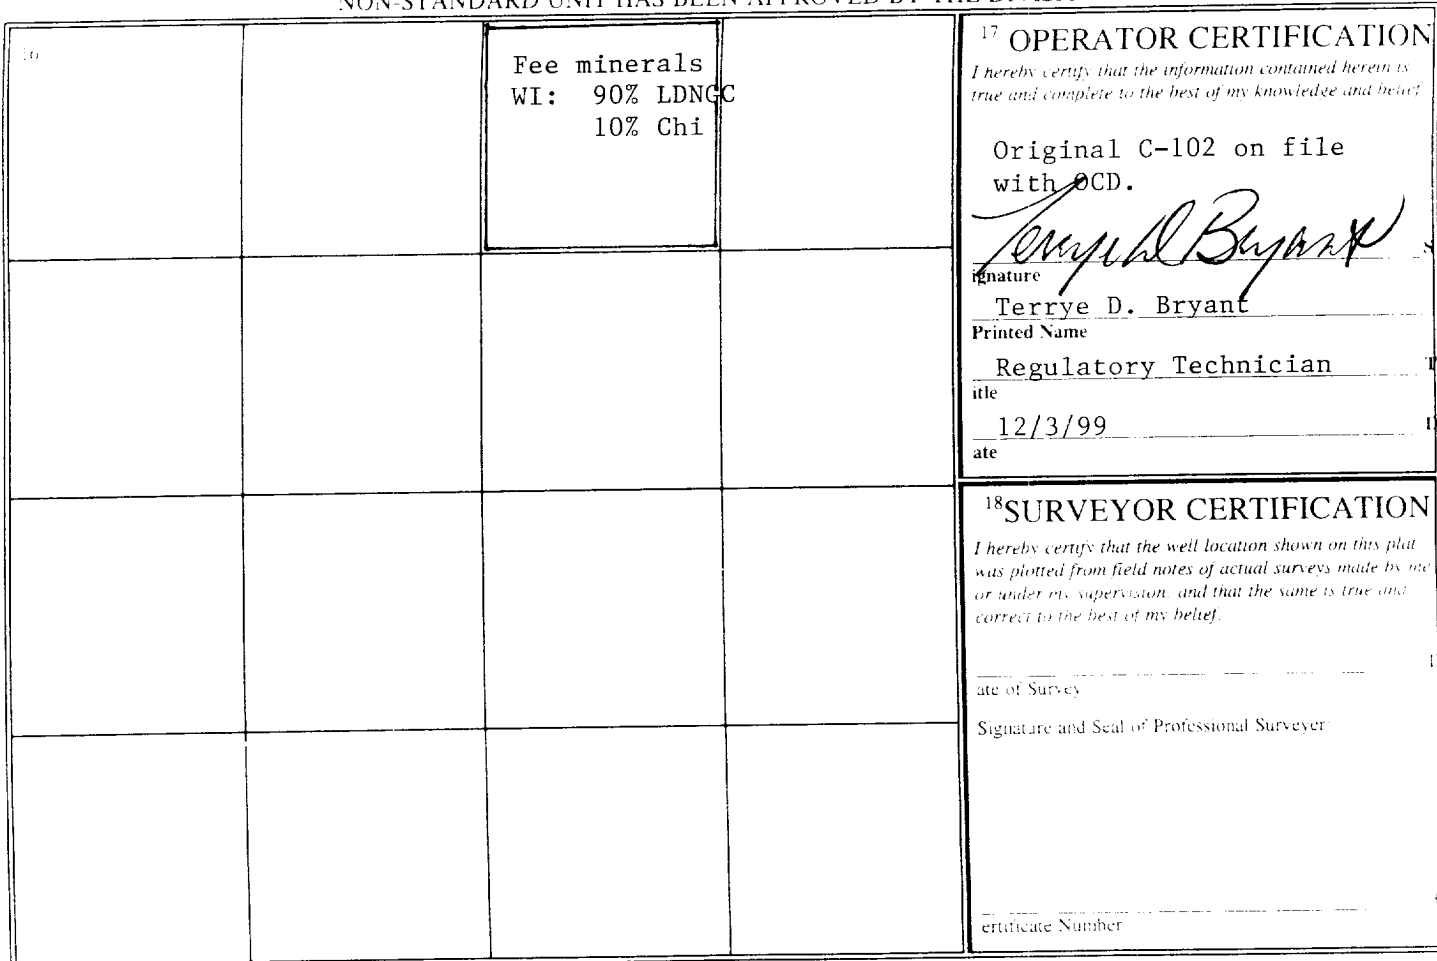 NON-STANDARD UNIT HAS BEEN APPROVED BY THE
16
Fee minerals
WI: 90% LDNGC
10% Chi
17 OPERATOR CERTIFICATION
I hereby certify that the information contained herein is
true and complete to the best of my knowledge and belief
Original C-102 on file
with OCD.
Terrye D Bryant
ignature
Terrye D. Bryant
Printed Name
Regulatory Technician
itle
12/3/99
ate
18 SURVEYOR CERTIFICATION
I hereby certify that the well location shown on this plat
was plotted from field notes of actual surveys made by me
or under my supervision, and that the same is true and
correct to the best of my belief.
ate of Survey
Signature and Seal of Professional Surveyer:
ertificate Number